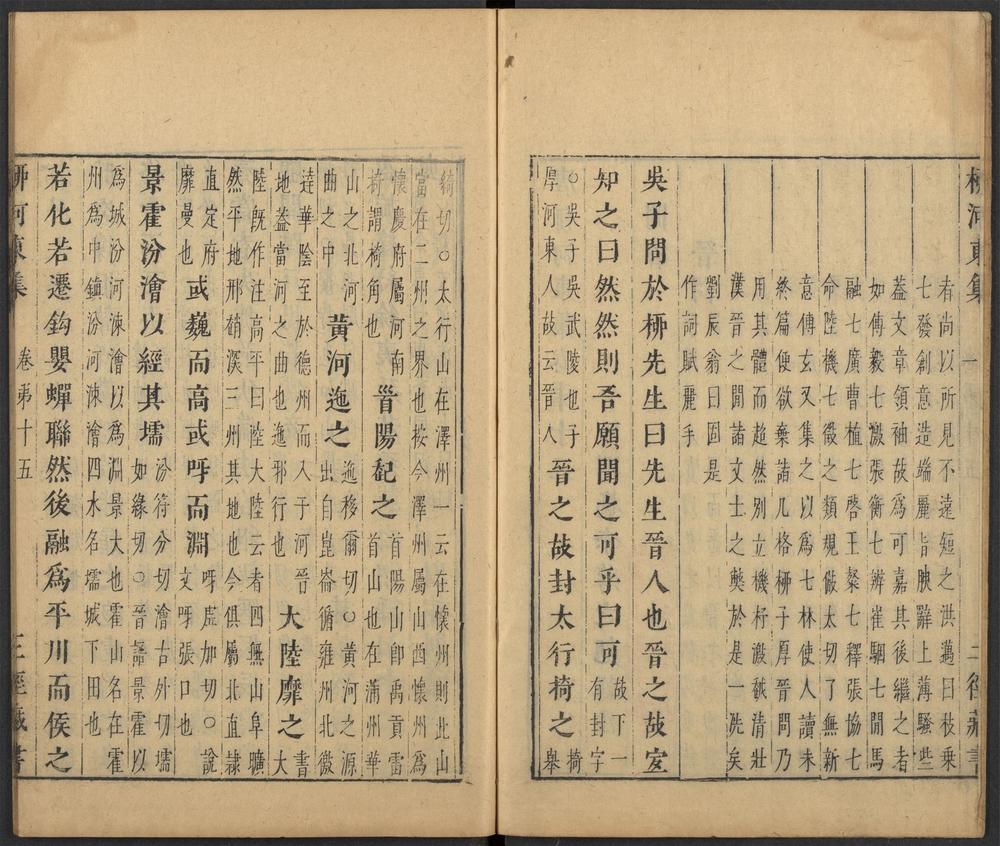 柳河東集
者尚以所見不遠短之洪邁曰枚乗
七發創意造端麗旨腴辭上薄騷些
葢文章領袖故爲可嘉其後繼之者
如傅毅七激張衡七辨崔駰七閒馬
融七廣曹植七啓王粲七釋張協七
命陸機七徵之類規倣太切了無新
意傅玄又集之以爲七林使人讀未
終篇便欲棄諸几格柳子厚晉問乃
用其體而超然別立機杼激越清壯
漢晉之閒諸文士之弊於是一洗矣
劉辰翁曰固是
作詞賦麗手
吳子問於柳先生曰先生晉人也晉之故宐
知之曰然然則吾願聞之可乎曰可
故下一
有封字
○吳子吳武陵也子
厚河東人故云晉人
晉之故封太行掎之
掎
舉
綺切○太行山在澤州一云在懷州則此山
當在二州之界也按今澤州屬山西懷州爲
懷慶府屬河南
掎謂掎角也
首陽起之
首陽山卽禹貢雷
首山也在蒲州華
山之北河
曲之中
黃河迤之
迤移爾切○黃河之源
出自崑崙循雍州北徼
達華陰至於德州而入于河晉
地葢當河之曲也迤邪行也
大陸靡之
書
大
陸旣作注高平曰陸大陸云者四無山阜曠
然平地邢趙深三州其地也今俱屬北直隷
真定府
靡曼也
或巍而高或呀而淵
呀虛加切○說
文呀張口也
景霍汾澮以經其壖
汾符分切澮古外切壖
如緣切○晉語景霍以
爲城汾河涑澮以爲淵景大也霍山名在霍
州爲中鎮汾河涑澮四水名壖城下田也
若化若遷鈎嬰蟬聯然後融爲平川而侯之
柳河東集 卷第十五 三徑藏書